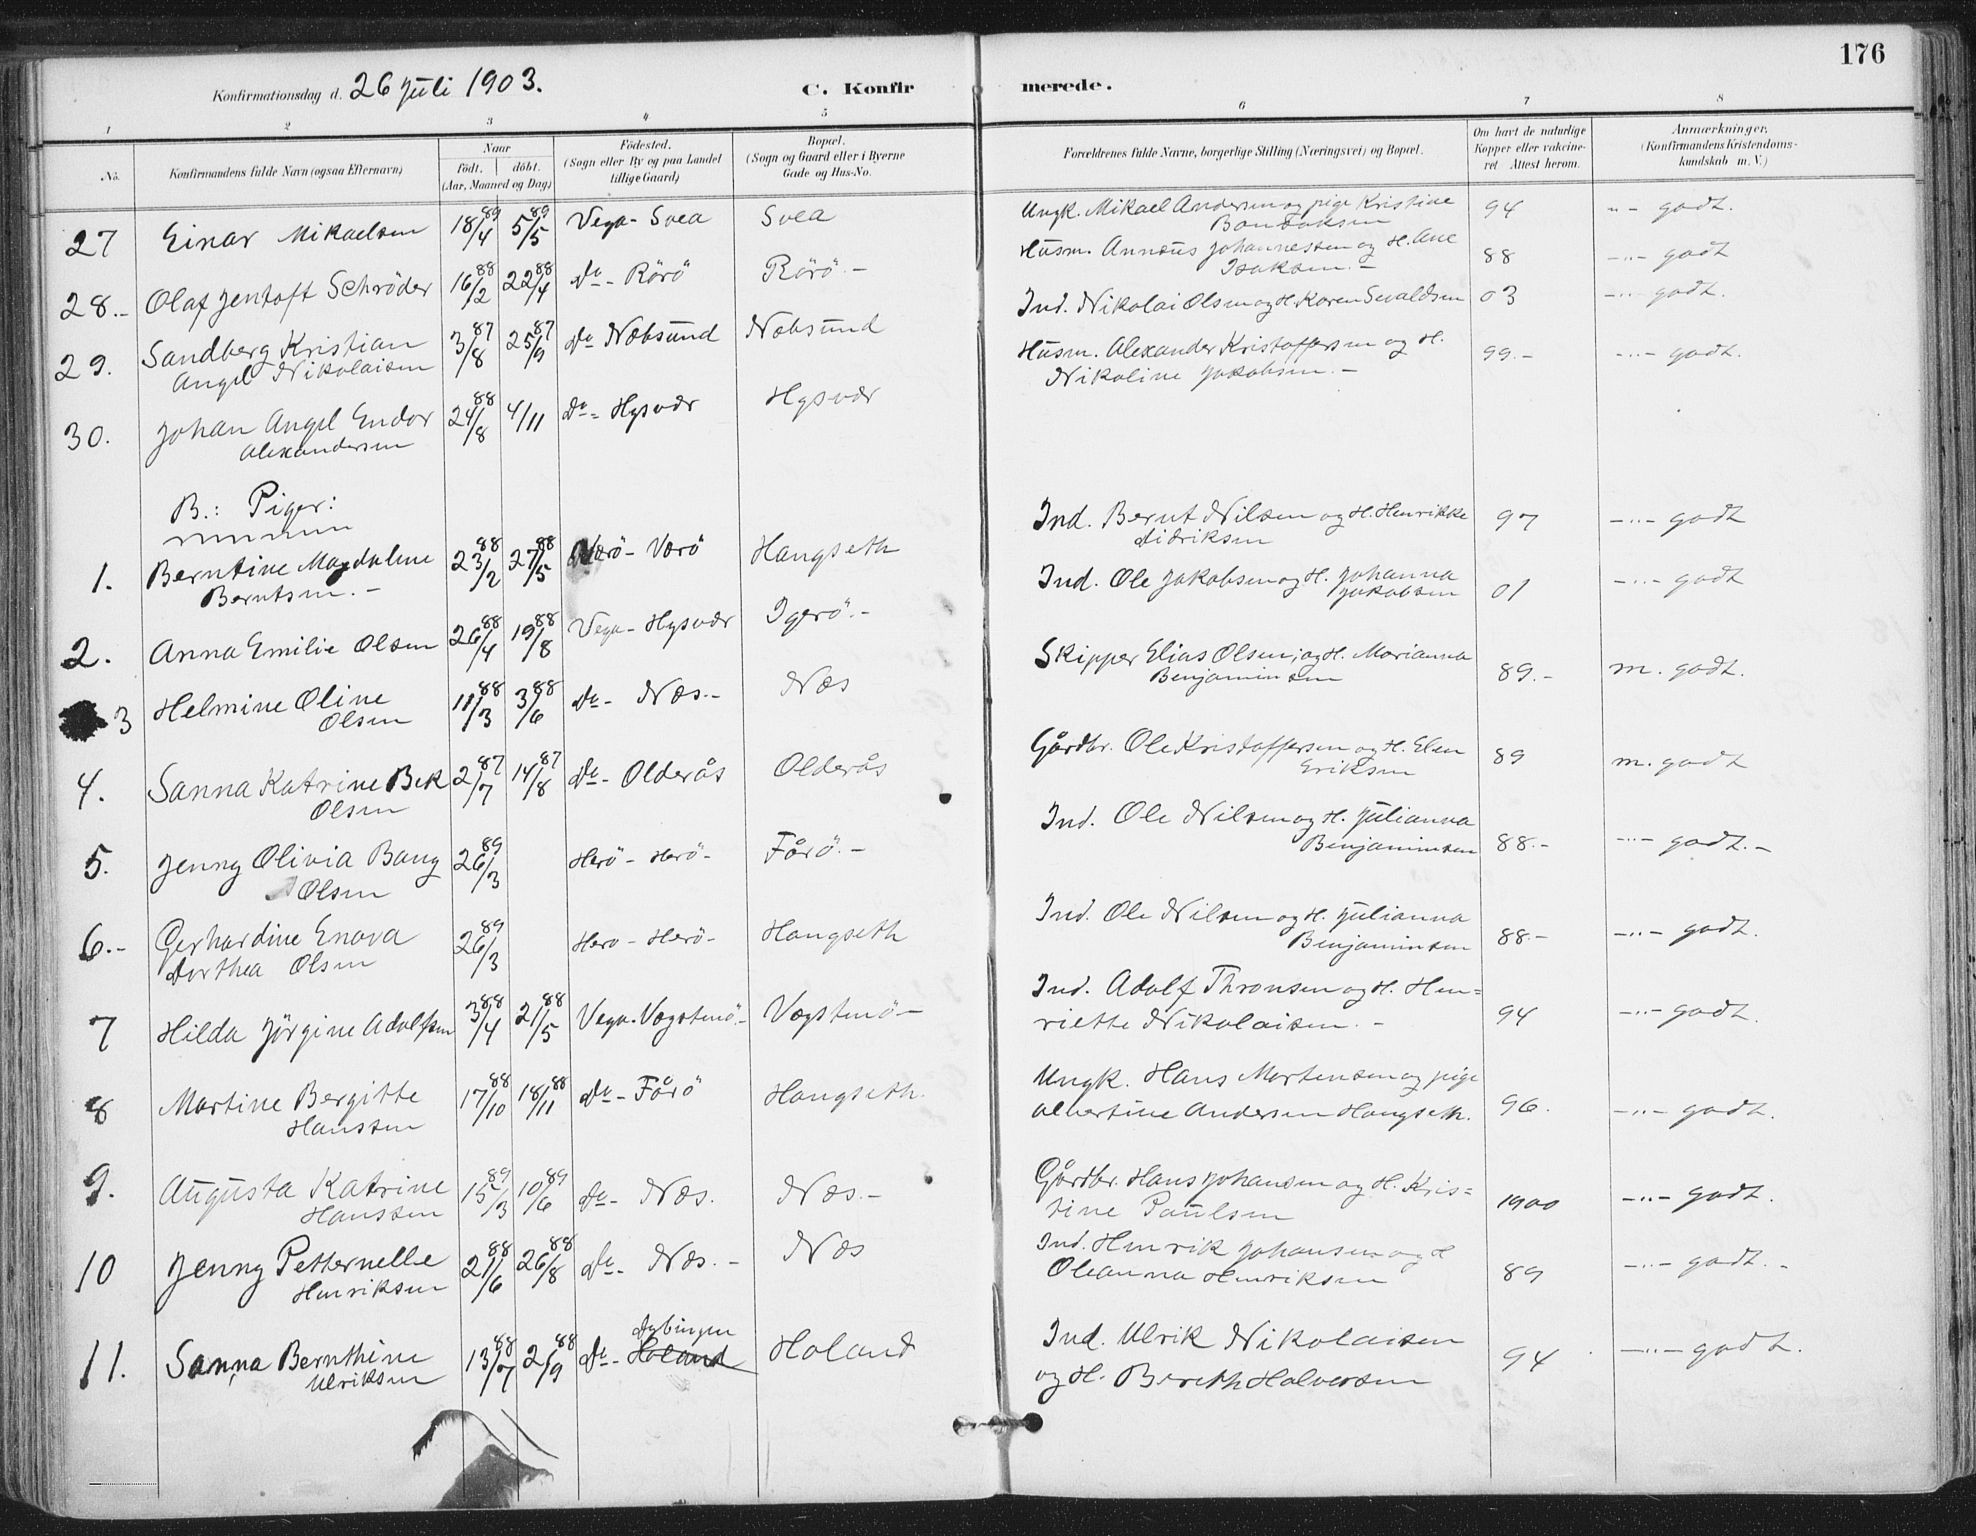 176
Konfirmationsdag d. 26 Juli 1903. C. Konfirmerede.
1 2 3 4 5 6 7 8
No. Konfirmandens fulde Navn (ogsaa Efternavn) Naar født. døbt. (Aar, Maaned og Dag) Fødested. (Sogn eller By og paa Landet tillige Gaard) Bopæl. (Sogn og Gaard eller i Byerne Gade og Hus-No. Forældrenes fulde Navne, borgerlige Stilling (Næringsvei) og Bopæl. Om havt de naturlige Kopper eller vaccineret Attest herom. Anmærkninger. (Konfirmandens Kristendomskundskab m. V.)
27 Einar Mikaelsen 18/4 89 5/5 89 Vega - Svea Svea Ungk. Mikael Andersen og pige Kristine 94 -"- godt.
28.- Olaf Jentoft Schrøder 16/2 88 22/4 88 Do - Rörö Rörö.- Husm. Annæus Johannessen og H. Ane
Isaksen.- 88 -"- godt
29. Sandberg Kristian
Angel Nikolaisen 3/8 87 25/9 87 Do Næbsund Næbsund Ind. Nikolai Olsen og H. Karen Sevaldsen 03 -"- godt.
30. Johan Angel Endor
Alexandersen 24/8 88 4/11 Do - Hysvær Hysvær Husm. Alexander Kristoffersen og H.
Nikoline Jakobsen.- 99.- -"- godt.
B.: Piger:
1. Berntine Magdalene
Berntsen.- 23/2 88 27/5 88 Værö - Værö Hangseth Ind. Bernt Nilsen og H. Henrikke
Didriksen 97 -"- godt
2. Anna Emilie Olsen 26/4 88 19/8 88 Vega - Hysvær Igerö.- Ind. Ole Jakobsen og H. Johanna
Jakobsen 01 -"- godt
3 Helmine Oline
Olsen 11/3 88 3/6 88 Do - Næs.- Næs Skipper Elias Olsen, og H. Marianna
Benjaminsen 89.- m. godt.
4. Sanna Katrine Bek
Olsen 2/7 87 14/8 87 Do - Olderås Olderås Gårdbr. Ole Kristoffersen og H. Elen
Eriksen 89 m. godt
5. Jenny Olivia Bang
Olsen 26/3 89 Herö - Herö- Fårö.- Ind. Ole Nilsen og H. Julianna
Benjaminsen 88.- -"- godt.-
6.- Gerhardine Enova
Dorthea Olsen 26/3 89 Hero - Herö- Hangseth Ind. Ole Nilsen og H. Julianna
Benjaminsen 88.- -"- godt.
7 Hilda Jörgine Adolfsen 3/4 88 21/5 88 Vega - Vægstenö.- Vægstenö- Ind. Adolf Thronsen og H. Hen=
riette Nikolaisen.- 94 -"- godt.
8 Martine Bergitte
Hanssen 17/10 88 18/11 88 Do - Fårö Hangseth. Ungk. Hans Mortensen og pige
Albertine Andersen Hangseth. 96. -"- godt.
9. Augusta Katrine
Hanssen 15/3 89 10/6 89 Do - Næs. Næs.- Gårdbr. Hans Johansen og H. Kris=
tine Paulsen 1900 -"- godt.
10 Jenny Petternelle
Henriksen 21/6 88 26/8 88 Do - Næs.- Næs Ind. Henrik Johansen og H
Oleanna Henriksen 89 -"- godt.-
11. Sanna Bernthine
Ulriksen 13/7 88 2/9 88 Do - Holand Dybingen Holand Ind. Ulrik Nikolaisen
og H. Bereth Halversen 94 -"- godt.